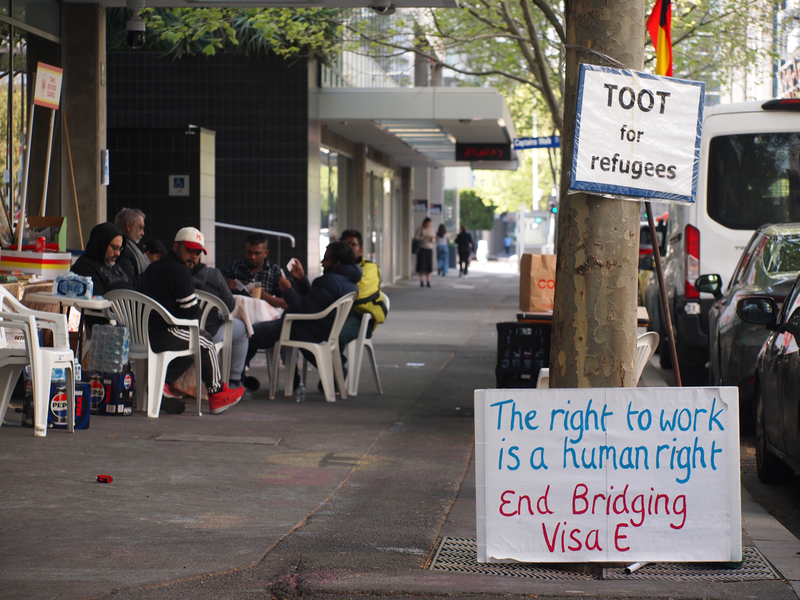 TOOT
for
refugees
The right to work
is a human right
End Bridging
Visa E
pepsi
CO